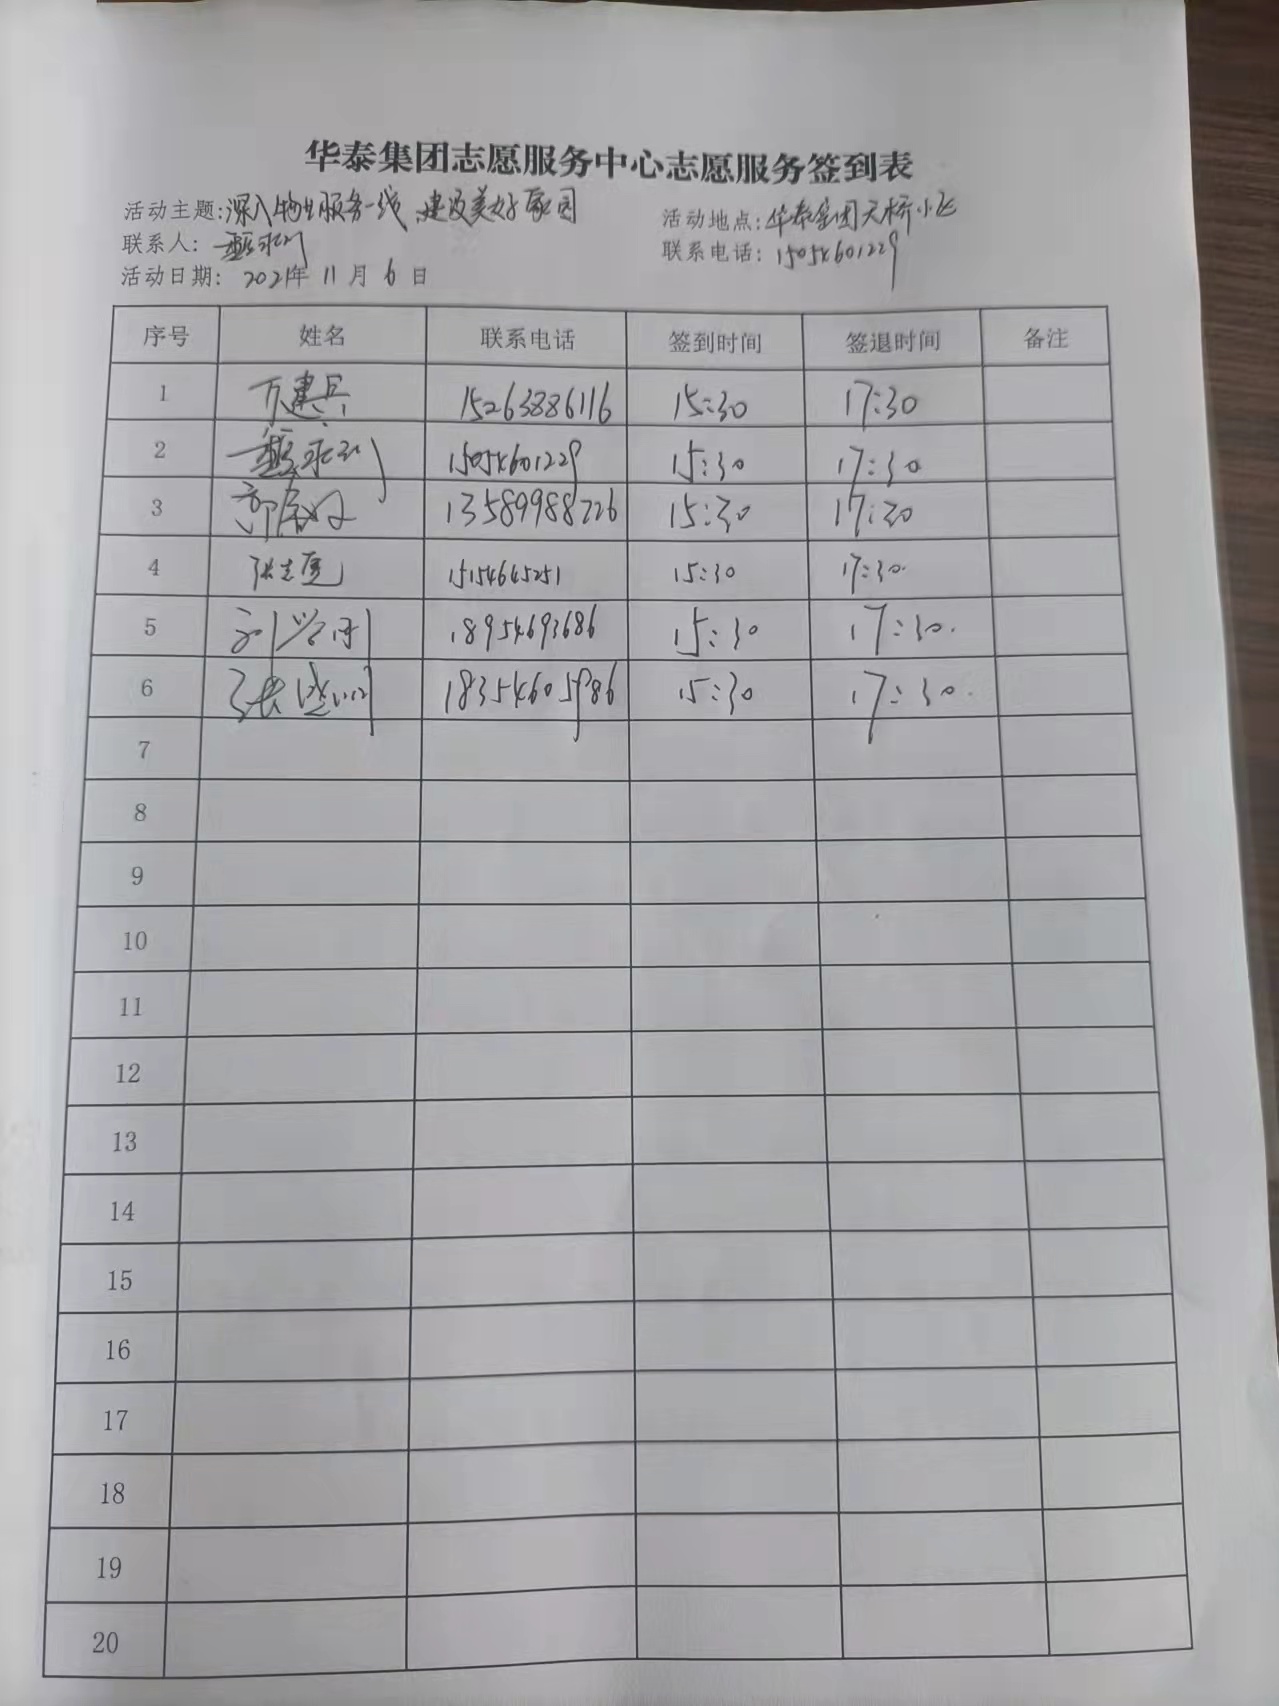 华泰集团志愿服务中心志愿服务签到表
活动主题:深入物业服务一线、建设美好家园 活动地点:华泰集团天桥小区
联系人: 联系电话:15054601229
活动日期: 2021年 11 月 6 日
序号 姓名 联系电话 签到时间 签退时间 备注
1 万建兵 15263886116 15:30 17:30
2 15054601229 15:30 17:30
3 13589988226 15:30 17:30
4 15154645251 15:30 17:30
5 18954693686 15:30 17:30.
6 18354605986 15:30 17:30.
7
8
9
10
11
12
13
14
15
16
17
18
19
20